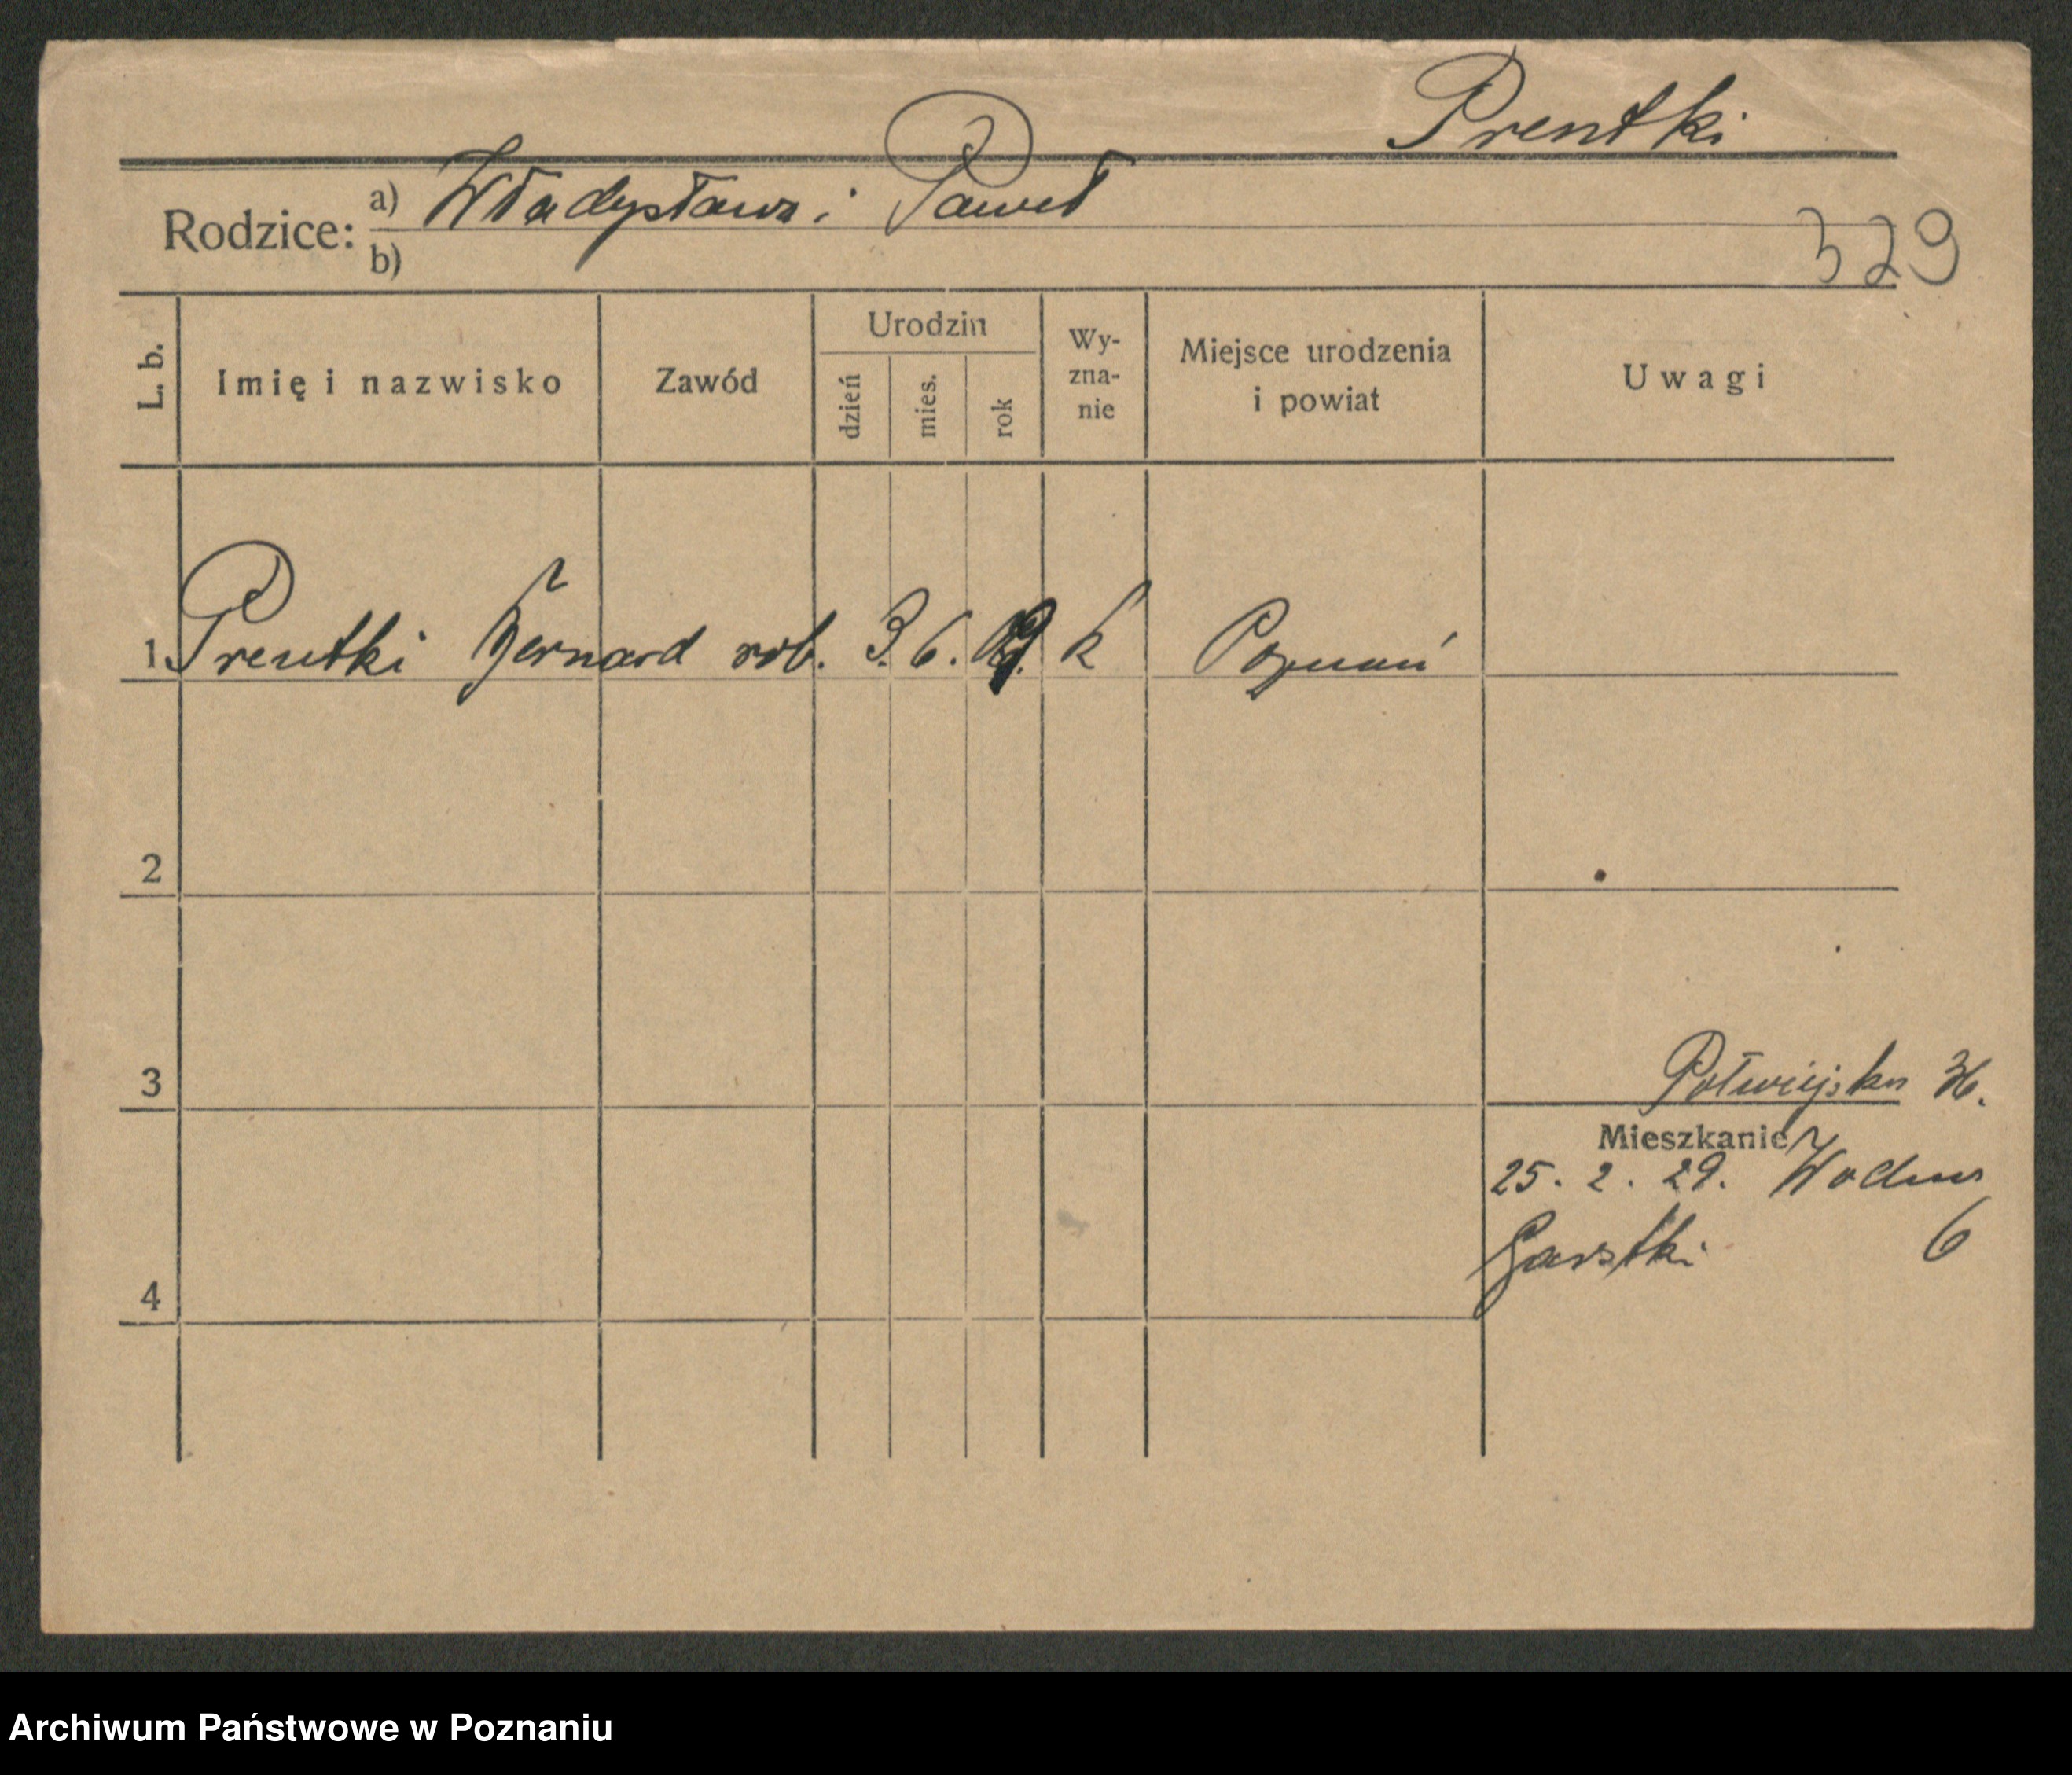 Prentki
Rodzice: a) Władysława i Paweł
b)
329
L. b. Imię i nazwisko Zawód Urodzin dzień mies. rok Wy-zna-nie Miejsce urodzenia i powiat Uwagi
1 Prentki Bernard rob. 3. 6. k Poznań
2
3
Półwiejska 36.
Mieszkanie
25. 2. 29. Wodna
Garstki 6
4
Archiwum Państwowe w Poznaniu